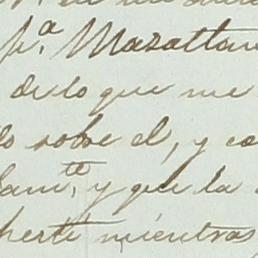 p.ª Mazatlan
de lo que me
lo sobre el, y co
lam.te, y que la
herte, mientras